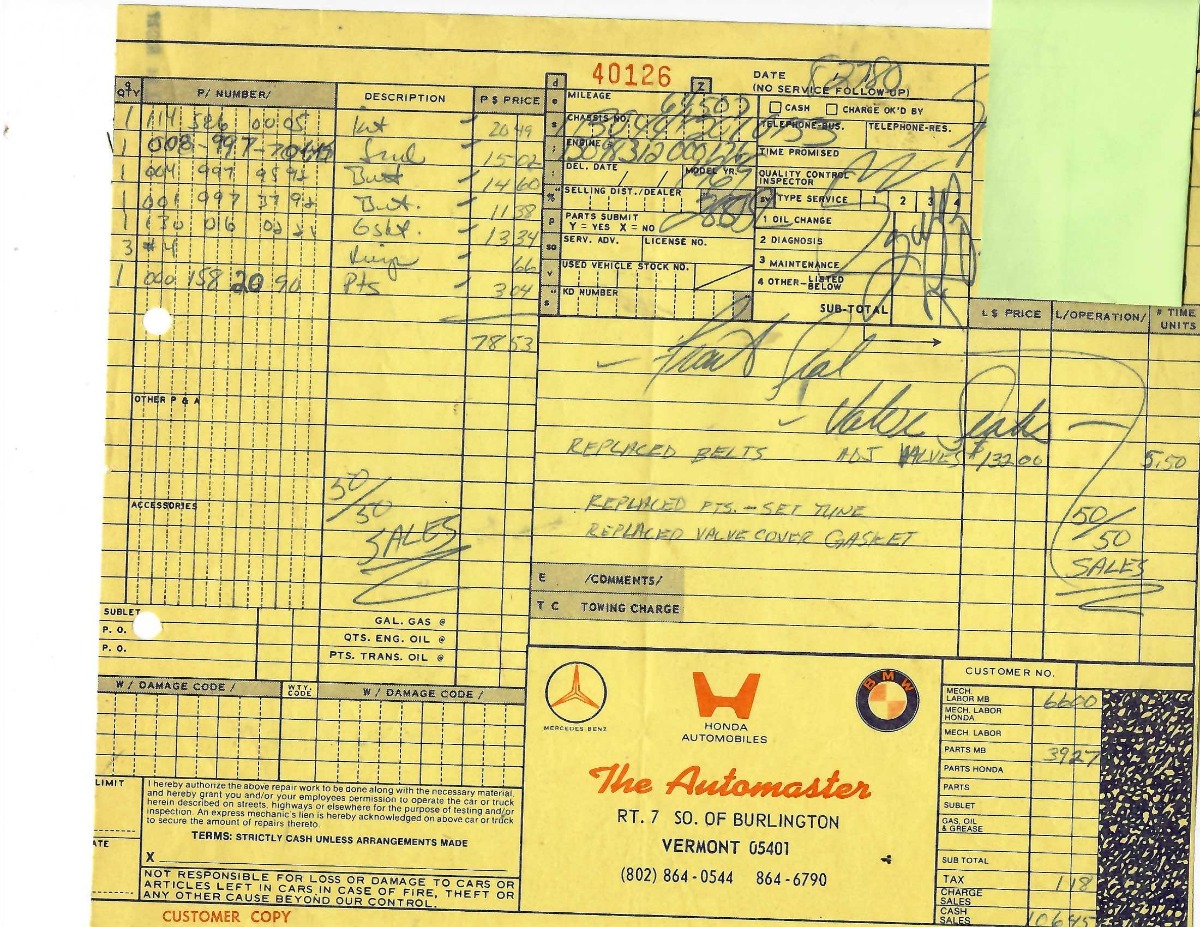 40126
DATE 52780
(NO SERVICE FOLLOW-UP)
QTY P/ NUMBER/ DESCRIPTION P $ PRICE
1 114 586 00 05 Kit 20 49
1 008-997-70 Seal 15 02
1 004 997 95 92 Belt 14 60
1 001 997 37 92 Belt. 11 38
1 130 016 02 21 Gskt. 13 34
3 #4 Rings 66
1 000 158 20 90 Pts 3 04
78 53
OTHER P & A
ACCESSORIES
50/50
SALES
SUBLET
P. O.
P. O.
GAL. GAS @
QTS. ENG. OIL @
PTS. TRANS. OIL @
MILEAGE 64507
CASH CHARGE OK'D BY
CHASSIS NO.
TELEPHONE-BUS. TELEPHONE-RES.
ENGINE #
TIME PROMISED
DEL. DATE / / MODEL YR.
QUALITY CONTROL INSPECTOR
SELLING DIST./DEALER
SV TYPE SERVICE 1 2 3 4
PARTS SUBMIT
Y = YES X = NO
1 OIL CHANGE
SERV. ADV. LICENSE NO.
2 DIAGNOSIS
USED VEHICLE STOCK NO.
3 MAINTENANCE
4 OTHER-LISTED BELOW
KD NUMBER
SUB-TOTAL
L $ PRICE L/OPERATION/ # TIME UNITS
Front Seal
Valve
REPLACED BELTS ADJ VALVES $132.00 5.50
REPLACED PTS. - SET TUNE
REPLACED VALVE COVER GASKET
50/50
SALES
E /COMMENTS/
T C TOWING CHARGE
W / DAMAGE CODE / WTY. CODE W / DAMAGE CODE /
LIMIT
I hereby authorize the above repair work to be done along with the necessary material,
and hereby grant you and/or your employees permission to operate the car or truck
herein described on streets, highways or elsewhere for the purpose of testing and/or
inspection. An express mechanic's lien is hereby acknowledged on above car or truck
to secure the amount of repairs thereto.
TERMS: STRICTLY CASH UNLESS ARRANGEMENTS MADE
ATE
X
NOT RESPONSIBLE FOR LOSS OR DAMAGE TO CARS OR
ARTICLES LEFT IN CARS IN CASE OF FIRE, THEFT OR
ANY OTHER CAUSE BEYOND OUR CONTROL.
CUSTOMER COPY
MERCEDES-BENZ
HONDA
AUTOMOBILES
BMW
The Automaster
RT. 7 SO. OF BURLINGTON
VERMONT 05401
(802) 864-0544 864-6790
CUSTOMER NO.
MECH. LABOR MB 6600
MECH. LABOR HONDA
MECH. LABOR
PARTS MB 3927
PARTS HONDA
PARTS
SUBLET
GAS, OIL & GREASE
SUB TOTAL
TAX 118
CHARGE SALES
CASH SALES 10645